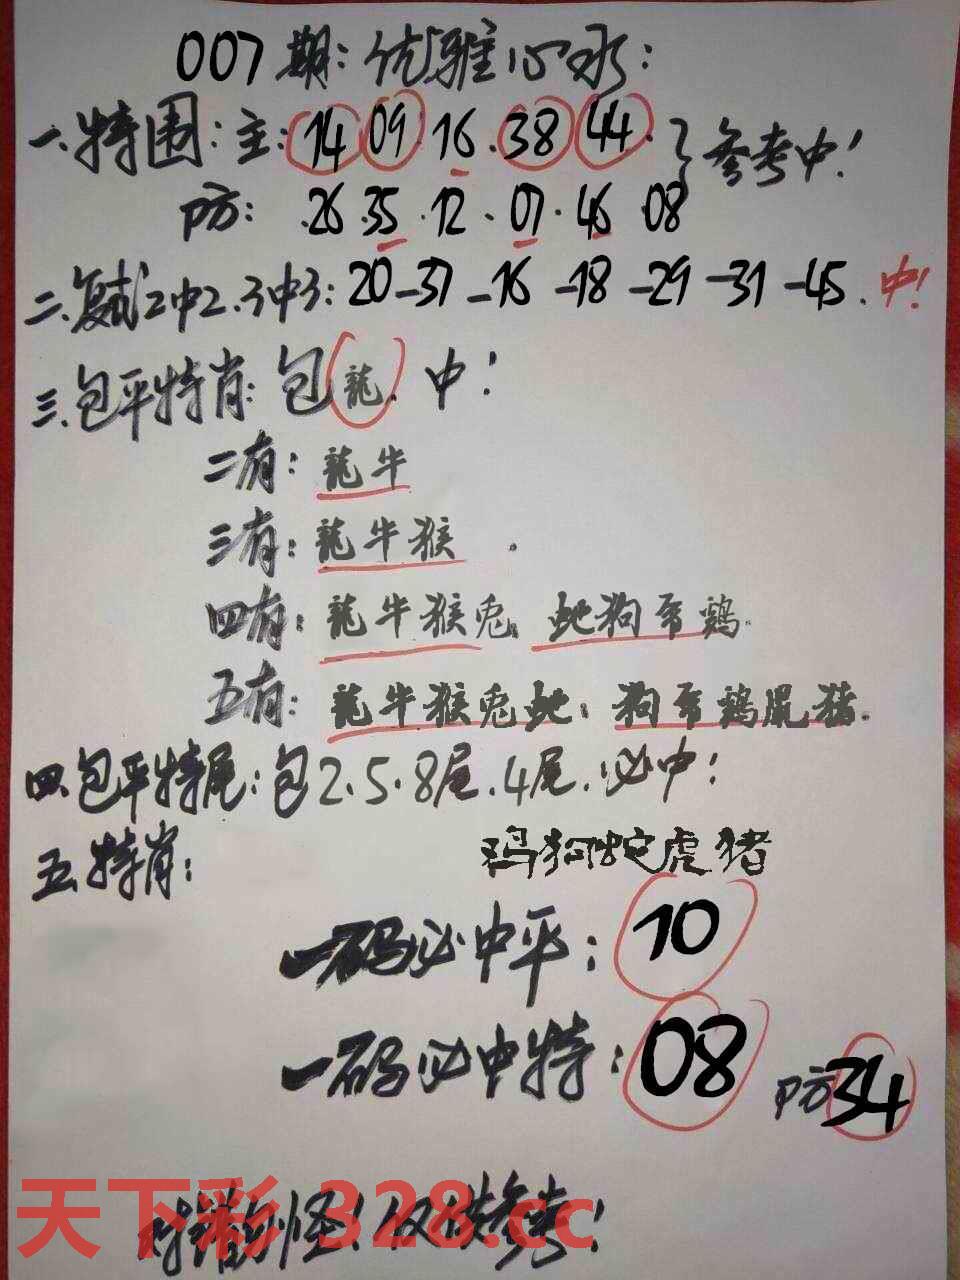 007期:优雅心水:
一.特围:主:14 09 16.38 44.}参考中!
防: .26.35.12.07.46 08
二.复式2中2.3中3:20-37-16-18-29-31-45.中!
三.包平特肖:包龍.中!
二有:龍牛
三有:龍牛猴.
四有:龍牛猴兎.蛇狗马鷄.
五有:龍牛猴兎蛇.狗马鷄鼠猪.
四.包平特尾:包2.5.8尾.4尾.必中!
五.特肖: 鸡狗蛇虎猪
一码必中平:10
一码必中特:08 防34
错勿怪!仅供参考!
天下彩 328.cc